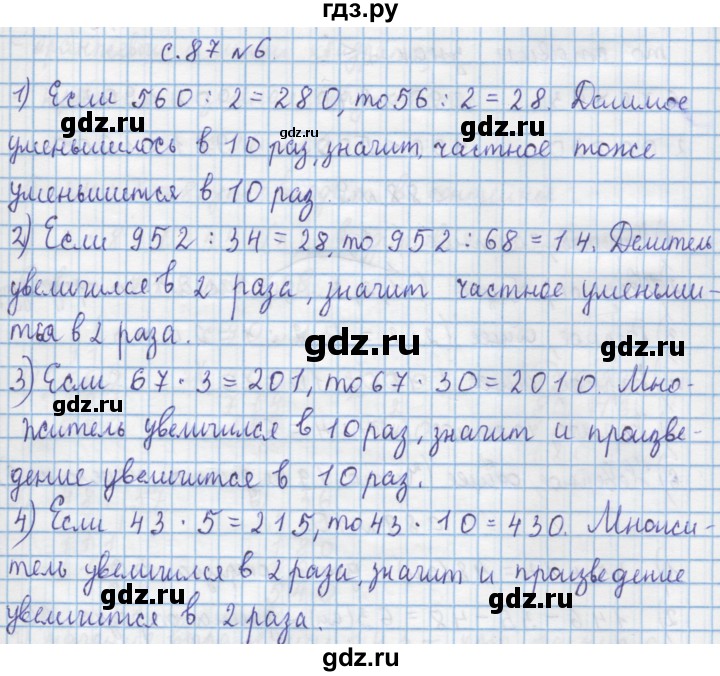 гдз.ру
с.87 №6.
1) Если 560 : 2 = 280, то 56 : 2 = 28. Делимое
gdz.ru gdz.ru gdz.ru
уменьшилось в 10 раз, значит, частное тоже
уменьшится в 10 раз.
gdz.ru gdz.ru
2) Если 952 : 34 = 28, то 952 : 68 = 14. Делитель
увеличился в 2 раза, значит частное уменьши-
gdz.ru
ться в 2 раза.
gdz.ru gdz.ru
3) Если 67 · 3 = 201, то 67 · 30 = 2010. Мно-
gdz.ru
житель увеличился в 10 раз, значит и произве-
gdz.ru
дение увеличится в 10 раз.
gdz.ru gdz.ru
4) Если 43 · 5 = 215, то 43 · 10 = 430. Множи-
тель увеличился в 2 раза, значит и произведение
gdz.ru gdz.ru gdz.ru
увеличится в 2 раза.
gdz.ru